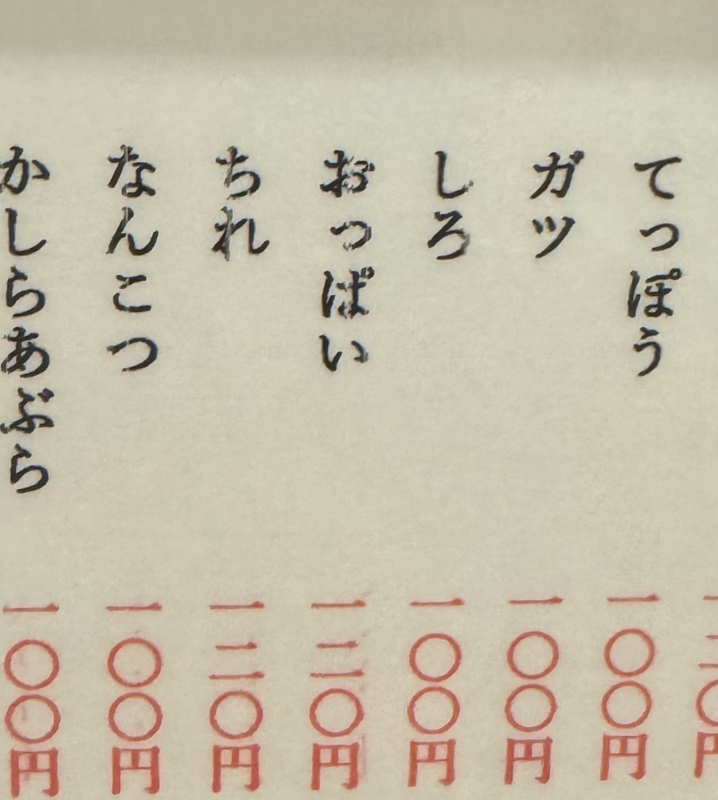 てっぽう 一〇〇円
ガツ 一〇〇円
しろ 一〇〇円
おっぱい 一二〇円
ちれ 一二〇円
なんこつ 一〇〇円
かしらあぶら 一〇〇円